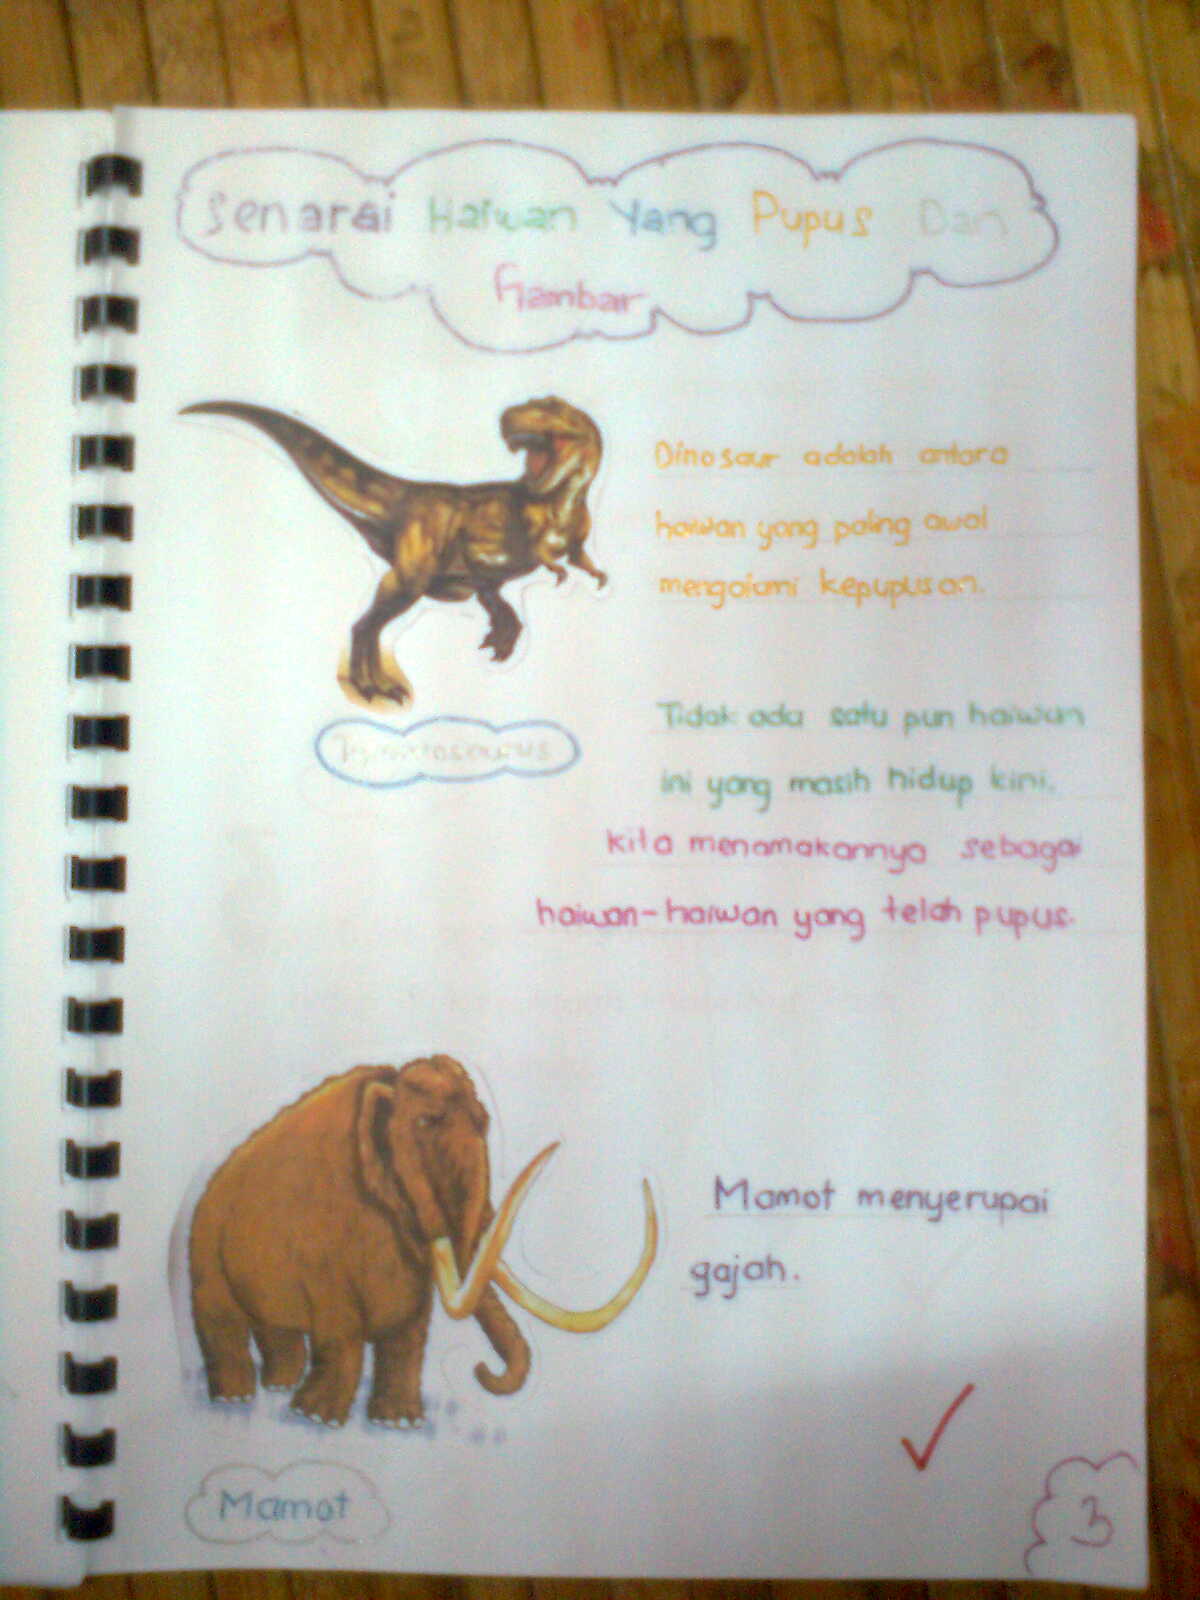 Senarai Haiwan Yang Pupus Dan
Gambar
Dinosaur adalah antara
haiwan yang paling awal
mengalami kepupusan.
Tidak ada satu pun haiwan
ini yang masih hidup kini.
Kita menamakannya sebagai
haiwan-haiwan yang telah pupus.
Mamot menyerupai
gajah.
Mamot
3